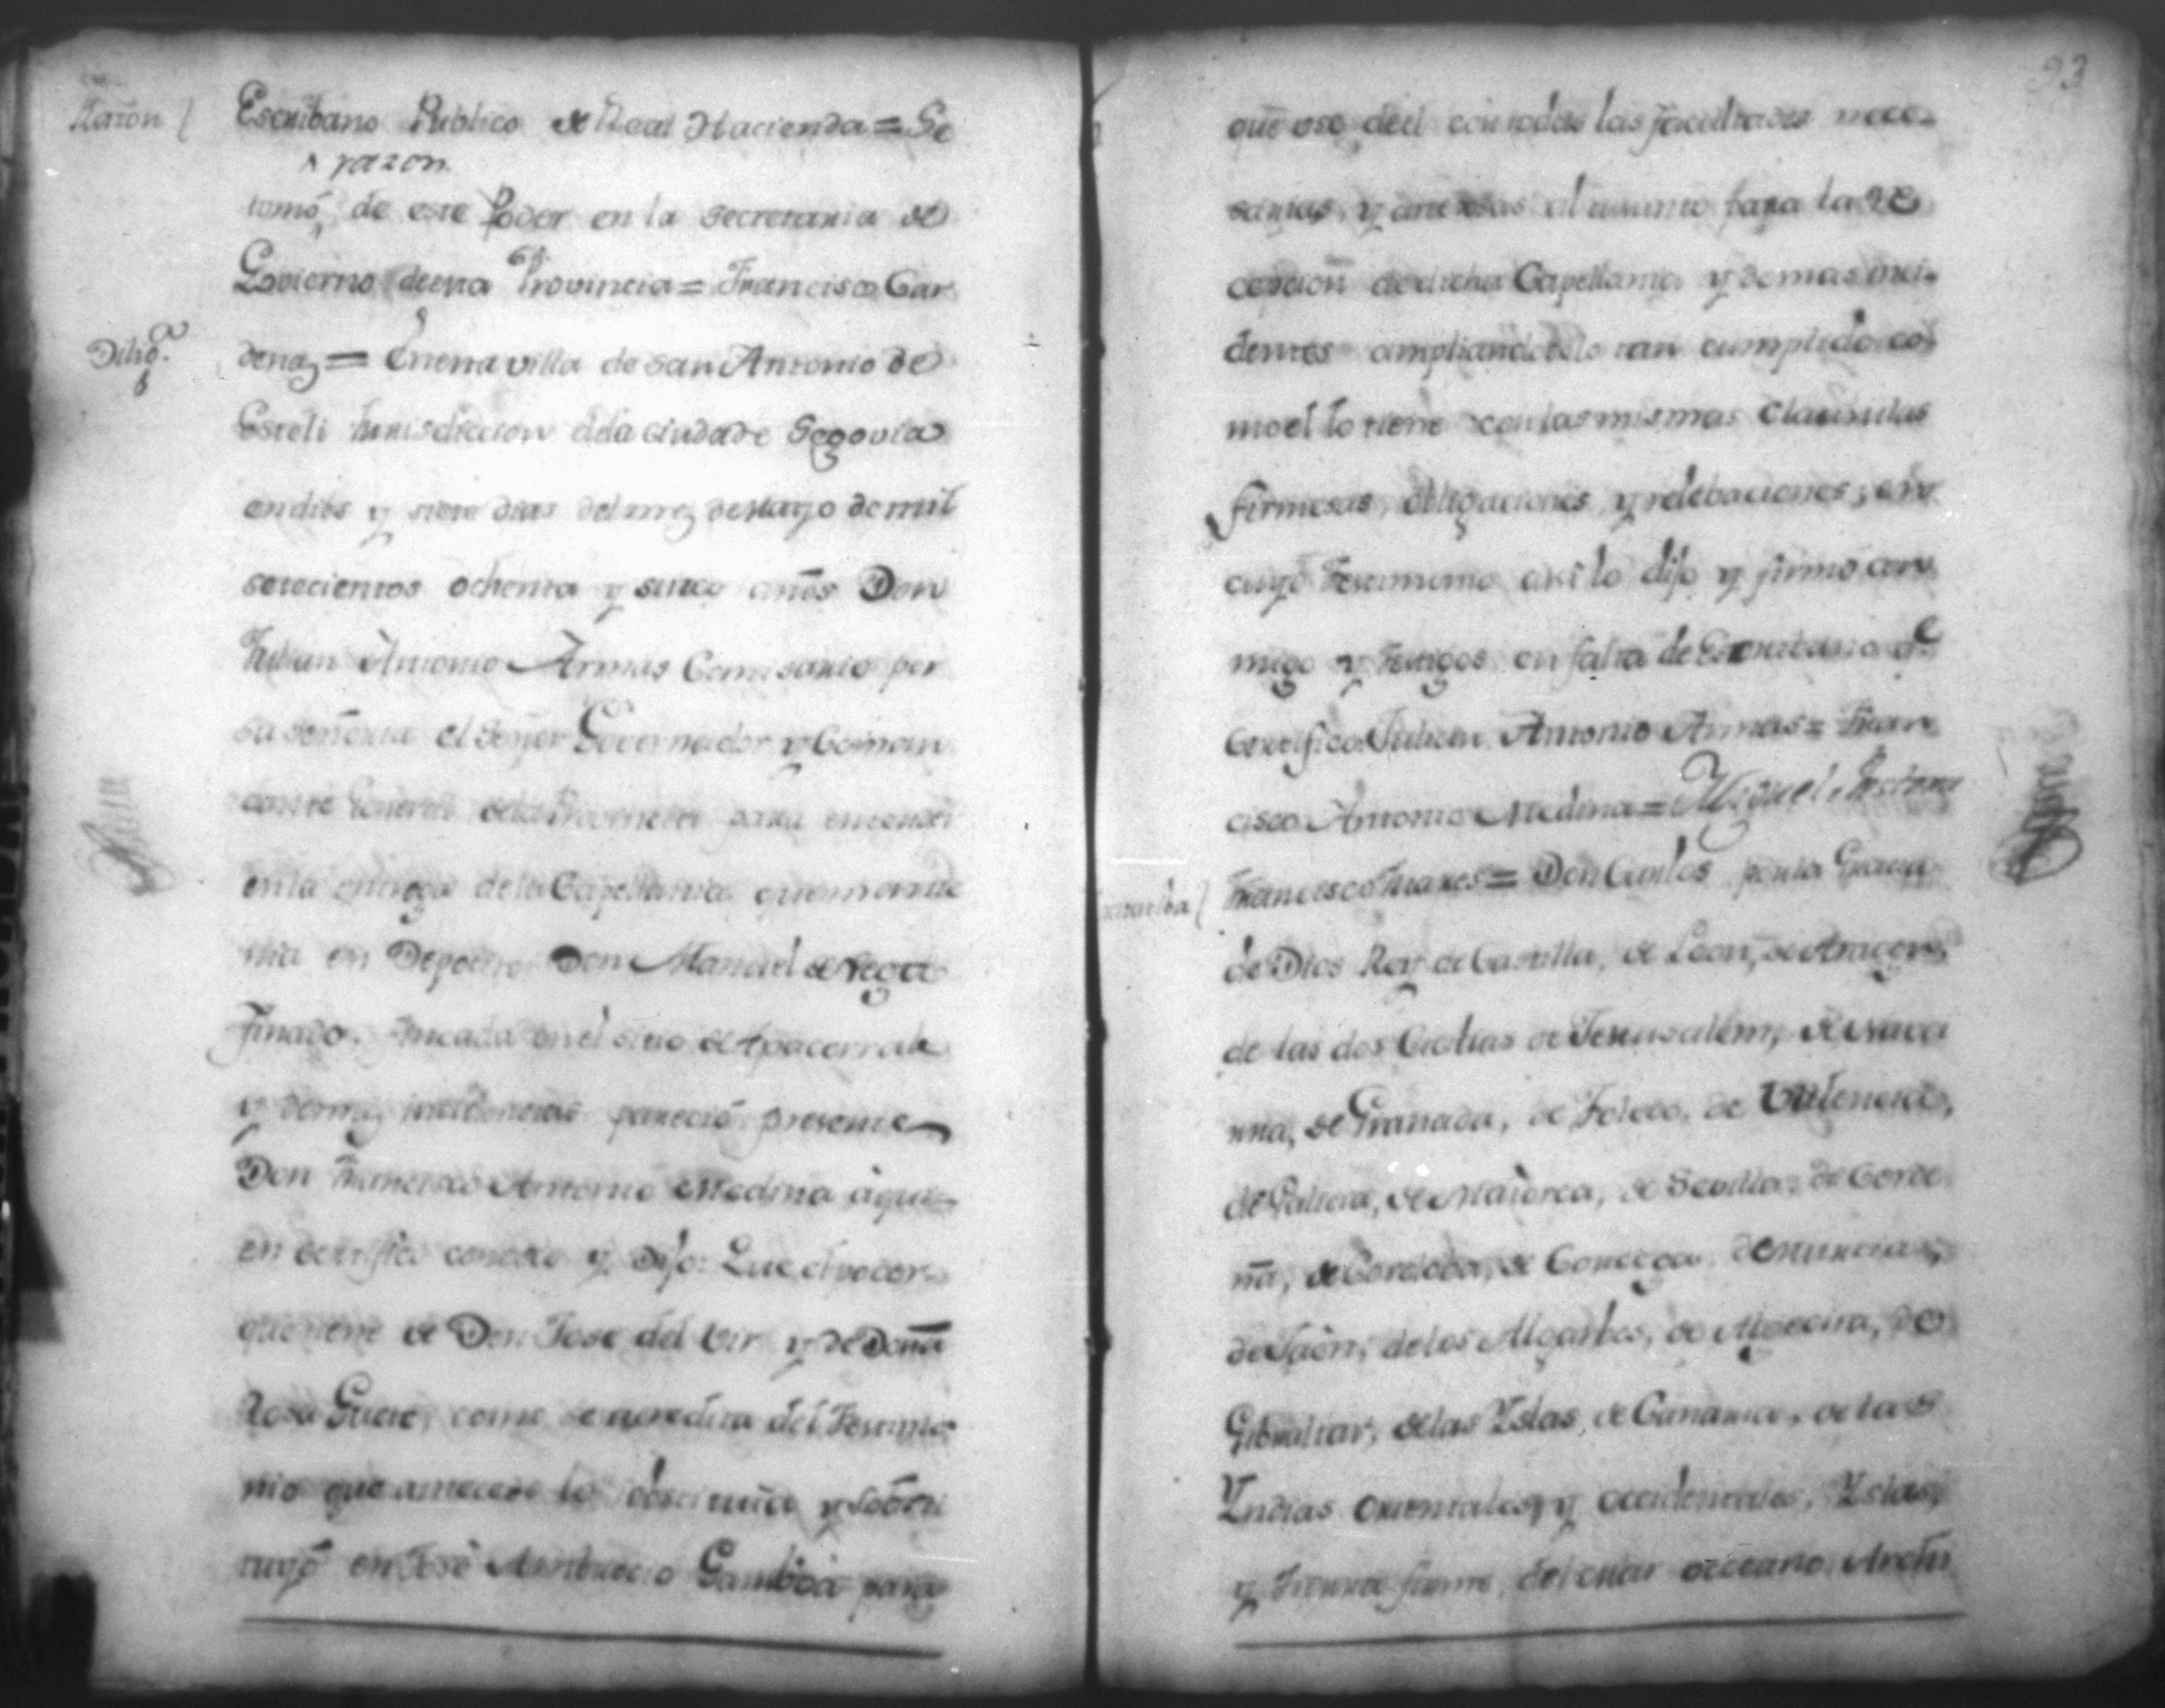 Razon
Escribano Publico de Real Hacienda = Se
^ razon
tomó, de este Poder en la secretaria de
Govierno deesta Provincia = Francisco Car
Dilig.a
denas = Enesta villa de san Antonio de
Esteli Jurisdiccion dela ciudad de Segovia
endies y siete dias del mes de Mayo de mil
setecientos ochenta y sinco años Don
Julian Antonio Armas Comisario por
su señoria el señor Governador y Coman
dante General dela Provincia para entender
enla entrega dela Capellania que mante
nia en Deposito Don Manuel de Vega
Finado. fincada en el sitio de
y demas insidencias parecio presente
Don Francisco Antonio Medina àqui
en certifico conosco y dijo: Que el poder
que tiene de Don Jose del Cir y de Doña
Rosa como se acredita del Testimo
nio que antecede lo y sostitu
tuyó en José Ambrocio Gamboa para
93
que use deel contodas las facultades nece
sarias, y anexsas al mismo para la re
cepcion dedicha Capellania y demas inci
dentes ampliandoselo tan cumplido co
mo el lo tiene con las mismas clausulas
firmesas, obligaciones y relebaciones, en
cuyo Testimonio asi lo dijo y firmo con
migo y Testigos en falta de Escribano q.e
Certifico Julian Antonio Armas = Fran
cisco Antonio Medina = Miguel
Francisco = Don Carlos por la Gracia
de Dios Rey de Castilla, de Leon, de Aragon,
de las dos Cicilias de Jerusalem, de Nava
rra, de Granada, de Toledo, de Valencia,
de Galicia, de Maiorca, de Sevilla, de Cerde
ña, de Cordoba, de Corcega, de Murcia,
de Jaen, delos Algarbes, de Algecira, de
Gibraltar, delas Yslas de Canaria, de las
Yndias Orientales, y occidentales, Yslas,
y Tierra firme, del mar occeano Archi